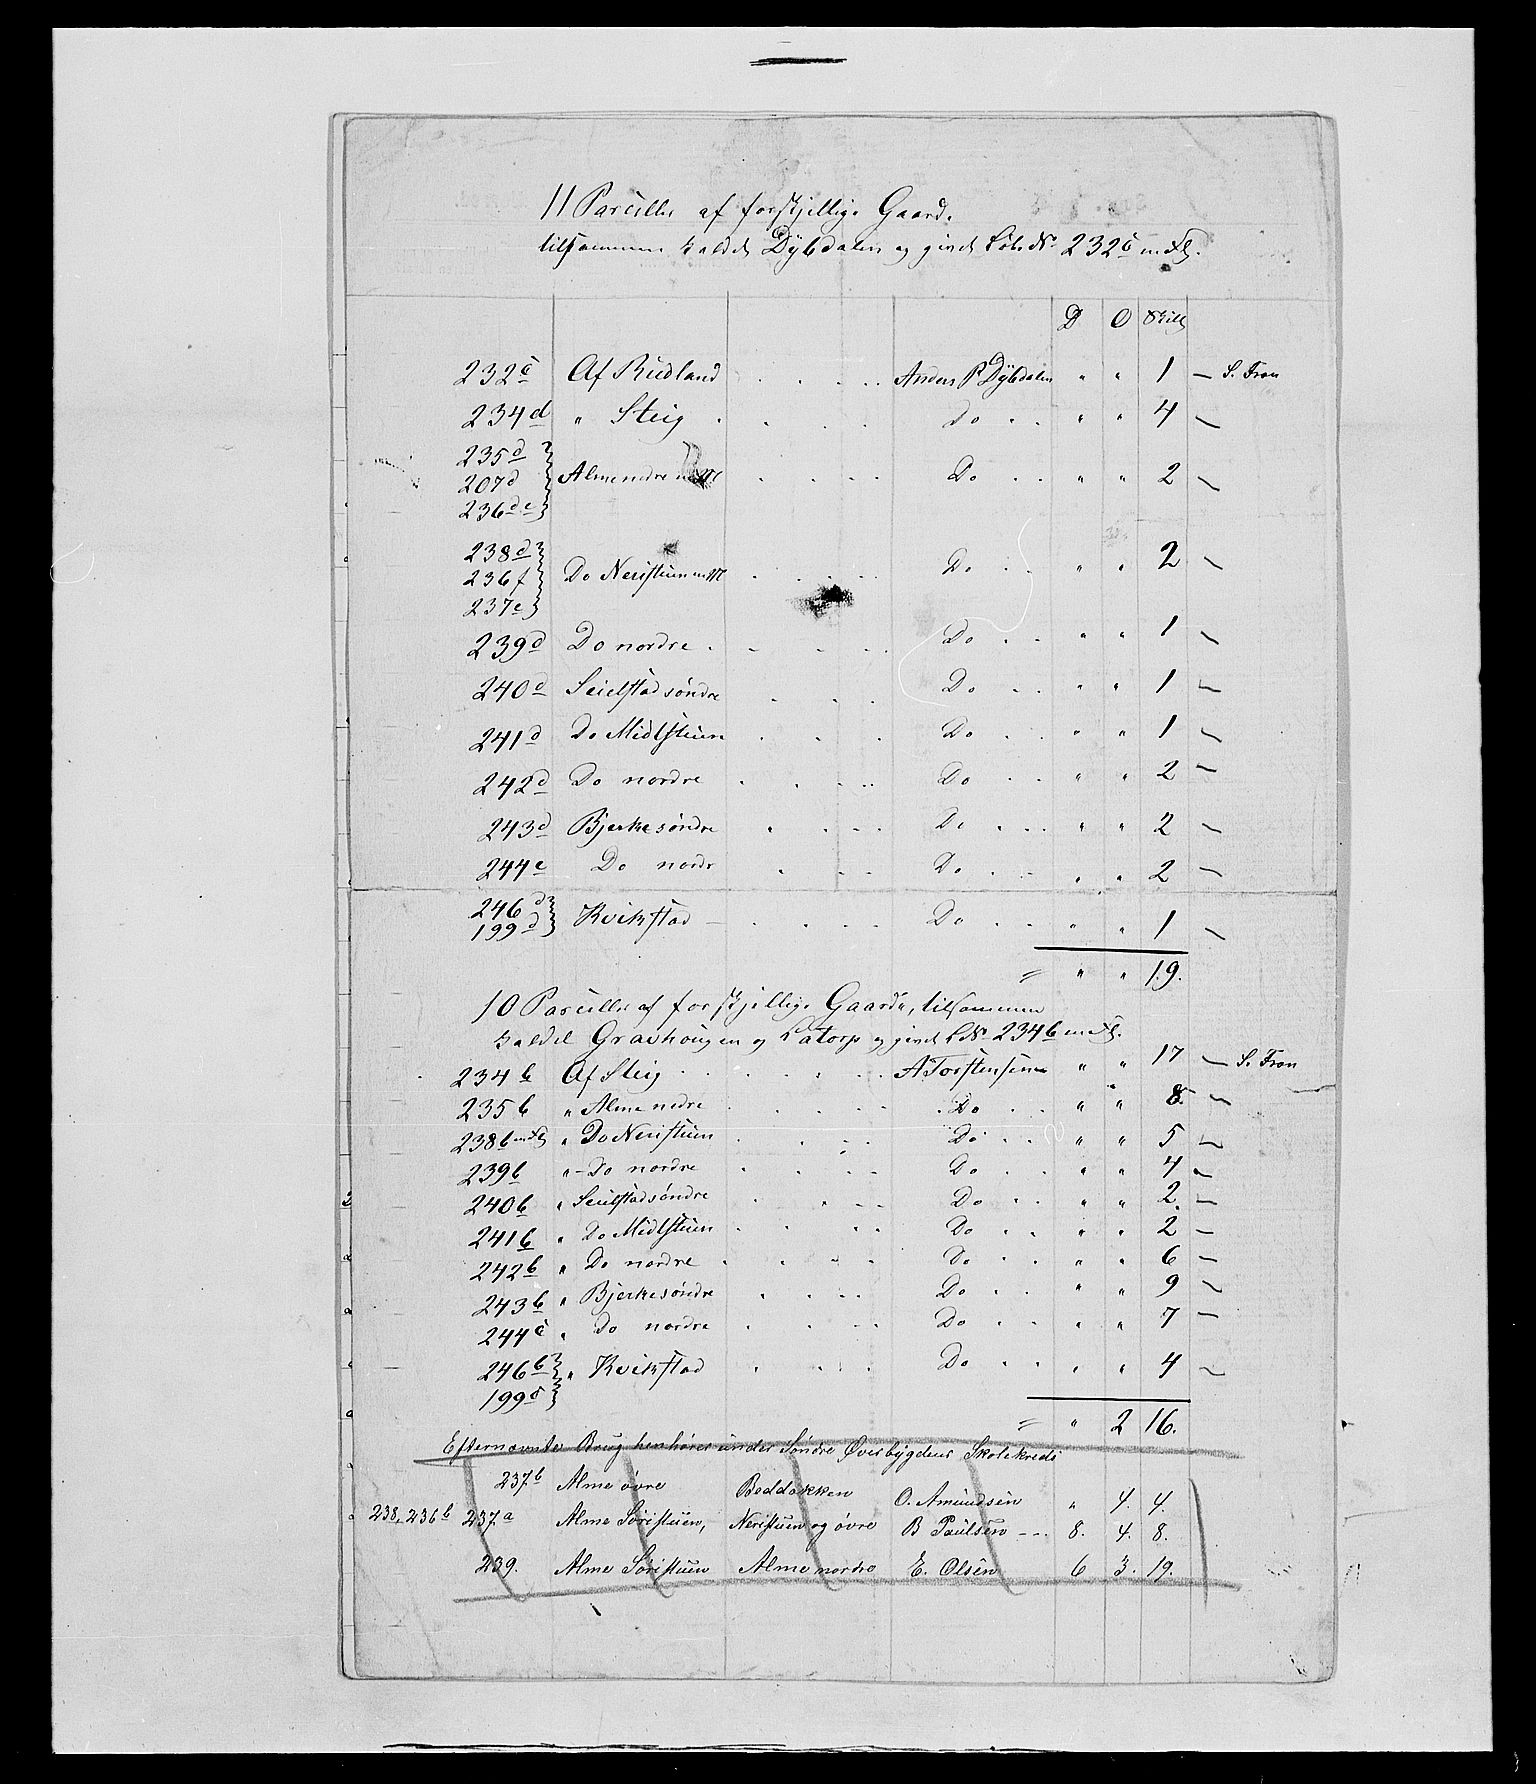 11 Parceller af forskjellige Gaarde
tilsammen kaldet Dybdalen og givet Løb.No 232c m. Fl.
D O Skill
232c Af Rudland . . . . Anders P Dybdalen " " 1 — S. Fron
234d " Steig . . . . Do . . " " 4 —
235d
207d Alme nedre m M . . . . Do . . " " 2 —
236d e
238d
236f Do Neristuen m M . . . . Do . . " " 2 —
237c
239d Do nordre . . . . Do . . " " 1 —
240d Seielstad søndre . . . Do . . " " 1 —
241d Do Midtstuen . . . Do . . " " 1 —
242d Do nordre . . . . Do . . " " 2 —
243d Bjerke søndre . . . . Do . . . " " 2 —
244e Do nordr . . . Do . . . " " 2 —
246d
199d Kvikstad — . . . . Do . . . " " 1 —
= " " 19.
10 Parceller af forskjellige Gaarde, tilsammen
kaldet Gravhougen og Ratorp og givet L No 234b m. Fl.
234b Af Steig . . . . . . A Torstensen " " 17 — S. Fron
235b " Alme nedre . . . . . Do . . " " 8. —
238b m Fl " Do Neristuen . . . . Do . . " " 5 —
239b " – Do nordre . . . . Do . . " " 4 —
240b " Seielstad søndre . . . . Do . . " " 2. —
241b " Do Midtstuen . . . . Do . . " " 2 —
242b " Do nordre . . . . Do . . " " 6 —
243b " Bjerke søndre . . . . Do . . " " 9 —
244c " Do nordre . . . . Do . . " " 7 —
246b " Kvikstad . . . . Do . . " " 4 —
199c
= " 2 16.
Efternævnte Brug henhører under Søndre Øverbygdens Skolekreds
237.b Alme øvre Beddakken O. Amundsen " 4. 4.
238, 236b 237.a Alme Søristuen, Neristuen og øvre B Paulsen --- 8. 4. 8.
239. Alme Søristuen Alme nordre E. Olsen 6 3. 19.